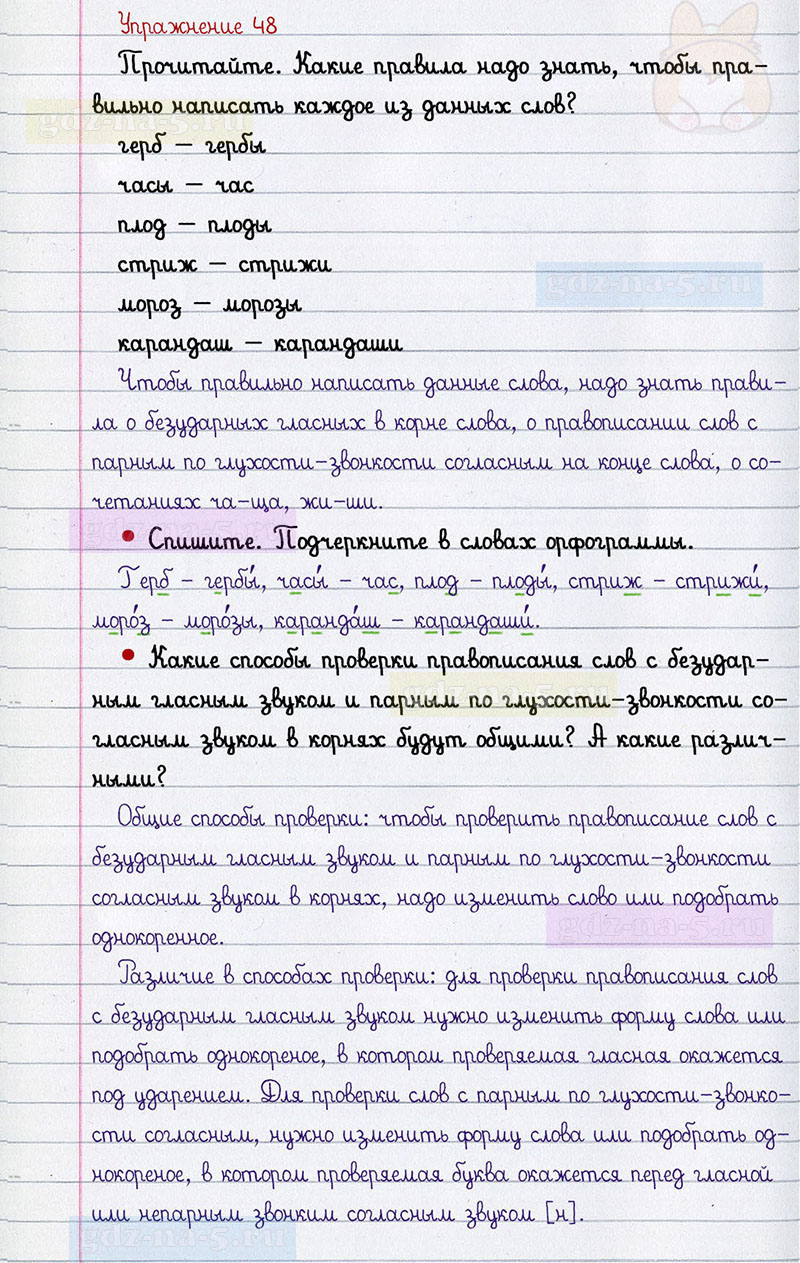 Упражнение 48
Прочитайте. Какие правила надо знать, чтобы пра-
вильно написать каждое из данных слов?
gdz-na-5.ru
герб – гербы
часы – час
плод – плоды
стриж – стрижи
gdz-na-5.ru
мороз – морозы
карандаш – карандаши
Чтобы правильно написать данные слова, надо знать прави-
ла о безударных гласных в корне слова, о правописании слов с
парным по глухости-звонкости согласным на конце слова, о со-
четаниях ча-ща, жи-ши.
gdz-na-5.ru
• Спишите. Подчеркните в словах орфограммы.
Герб – гербы́, часы́ – час, плод – плоды́, стриж – стрижи́,
моро́з – моро́зы, каранда́ш – карандаши́.
• Какие способы проверки правописания слов с безудар-
gdz-na-5.ru
ным гласным звуком и парным по глухости-звонкости со-
гласным звуком в корнях будут общими? А какие различ-
ными?
Общие способы проверки: чтобы проверить правописание слов с
безударным гласным звуком и парным по глухости-звонкости
согласным звуком в корнях, надо изменить слово или подобрать
однокоренное.
gdz-na-5.ru
Различие в способах проверки: для проверки правописания слов
с безударным гласным звуком нужно изменить форму слова или
подобрать однокореное, в котором проверяемая гласная окажется
под ударением. Для проверки слов с парным по глухости-звонко-
сти согласным, нужно изменить форму слова или подобрать од-
нокореное, в котором проверяемая буква окажется перед гласной
или непарным звонким согласным звуком [н].
gdz-na-5.ru